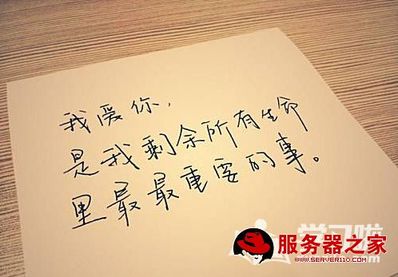 我愛你,
是我剩余所有生命
里最最最重要的事。
学习啦
服务器之家
WWW.SERVER110.COM